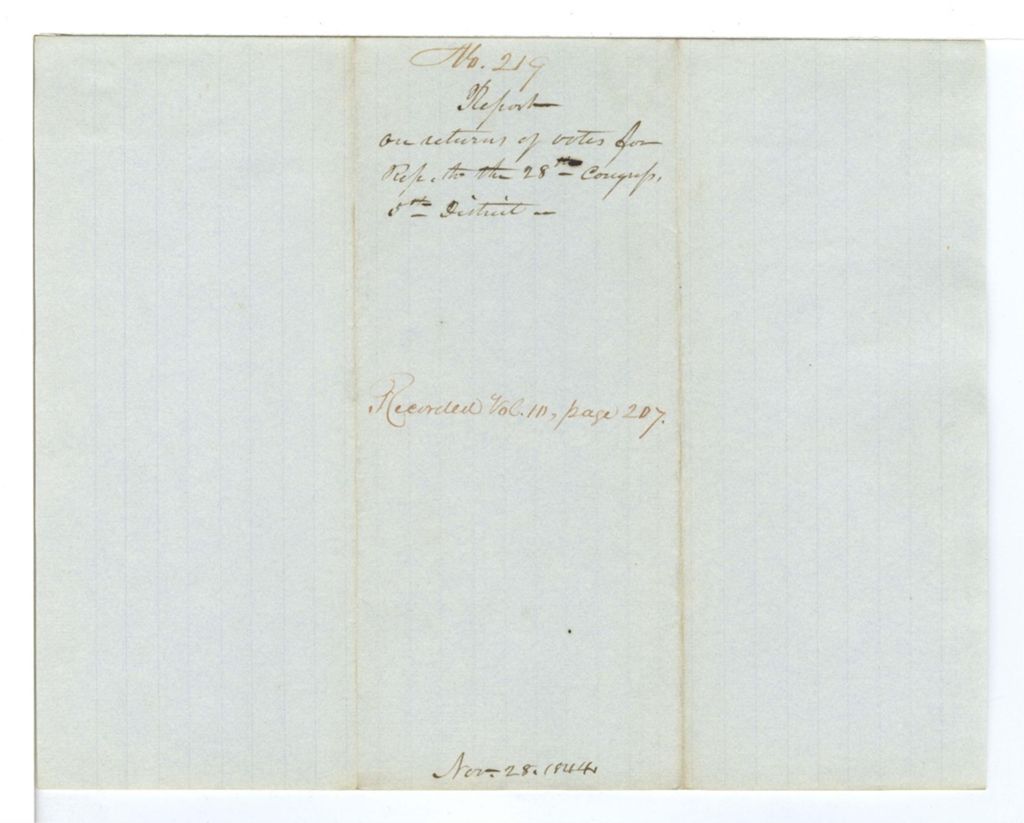 No. 219
Report
on returns of votes for
Rep. to the 28th Congress.
5th District —
Recorded Vol. 10, page 207.
Nov. 28. 1844.